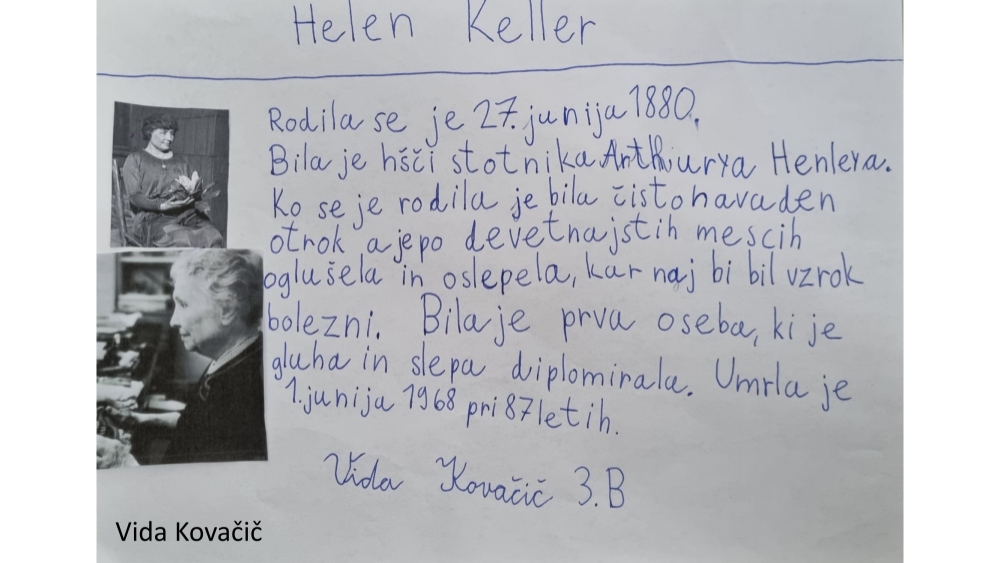 Helen Keller
Rodila se je 27. junija 1880.
Bila je hšči stotnika Arthurya Henlerа.
Ko se je rodila je bila čisto navaden
otrok a je po devetnajstih mescih
oglušela in oslepela, kar naj bi bil vzrok
bolezni. Bila je prva oseba, ki je
gluha in slepa diplomirala. Umrla je
1. junija 1968 pri 87 letih.
Vida Kovačič 3. B
Vida Kovačič